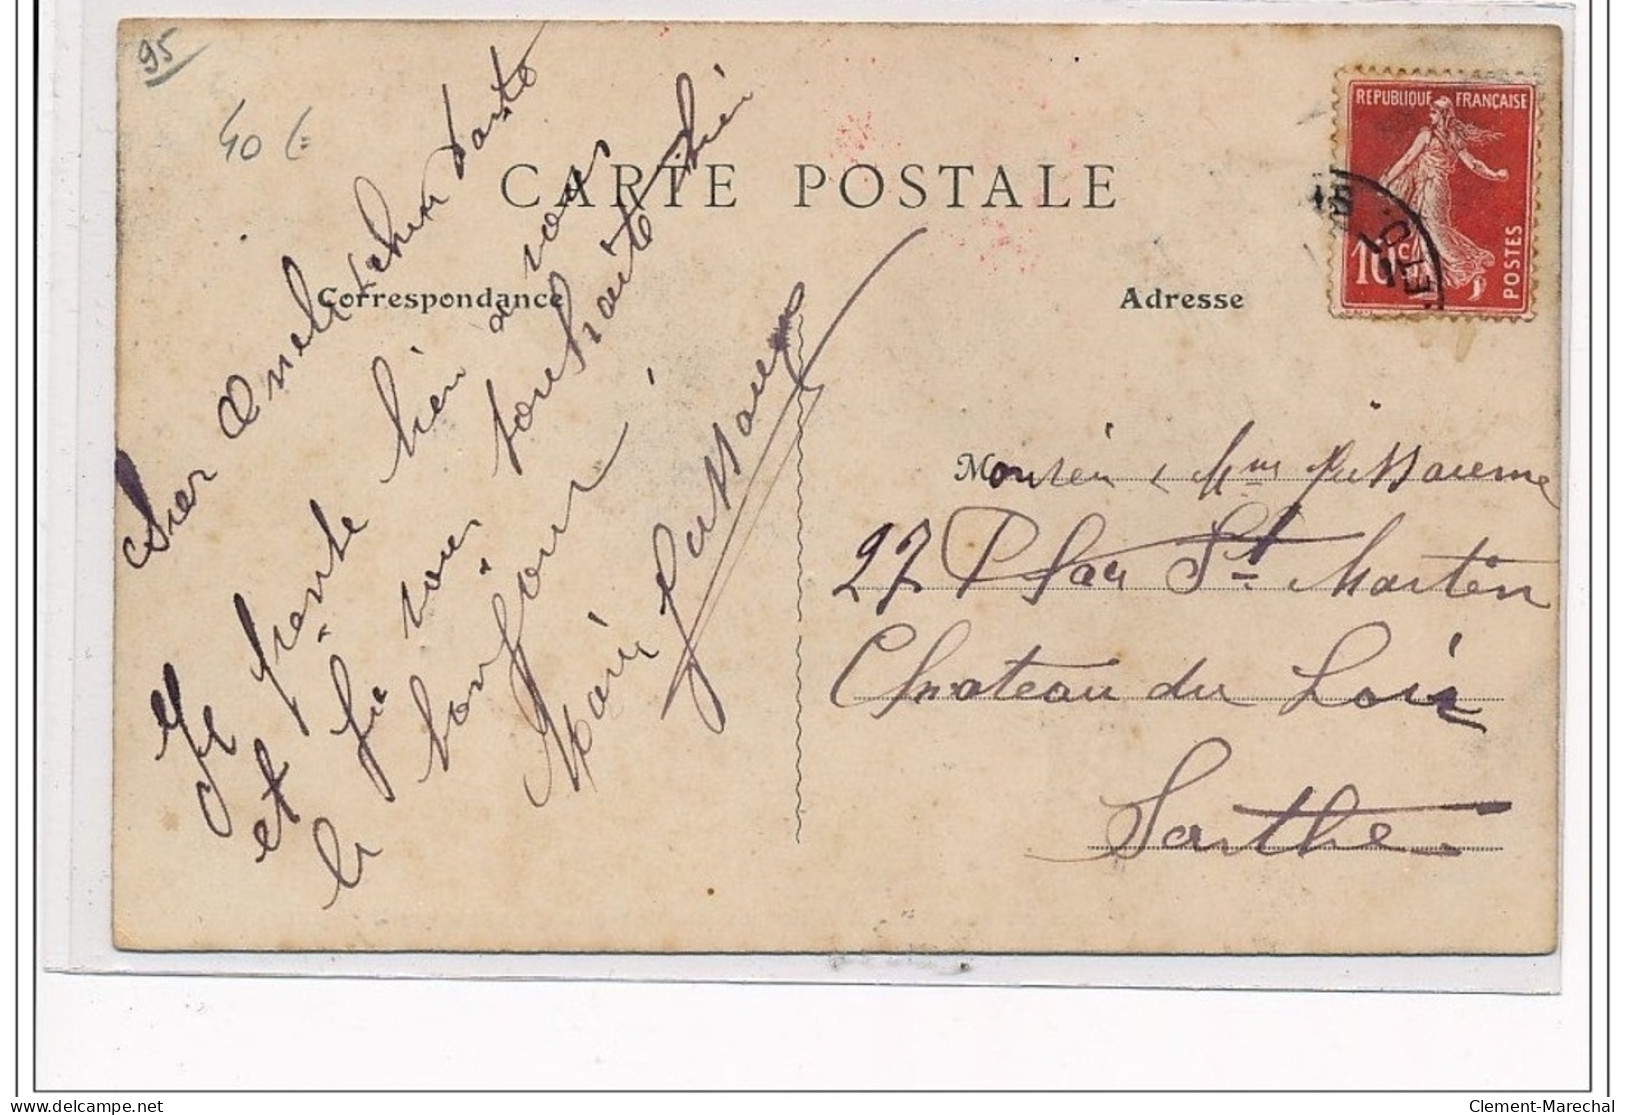 95
40 €
CARTE POSTALE
Correspondance
Adresse
REPUBLIQUE FRANÇAISE
10c
POSTES
Cher et cher Tante
Je bien a vous
et vous souhaite bien
le bonjour
Marie
Monsieu & Mme
27 Place St Martin
Chateau du Loir
Sarthe
Clement-Marechal